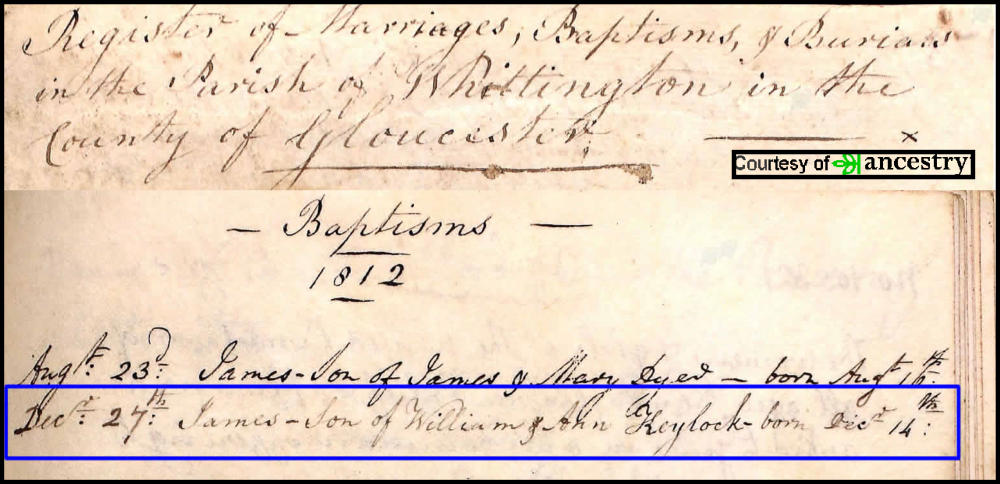 Register of Marriages, Baptisms, & Burials
in the Parish of Whittington in the
County of Gloucester. x
Courtesy of ancestry
— Baptisms —
1812
Augt. 23d: James - Son of James & Mary Dyer — born Augt 16th:
Decr. 27th: James - Son of William & Ann Keylock - born Decr 14th: